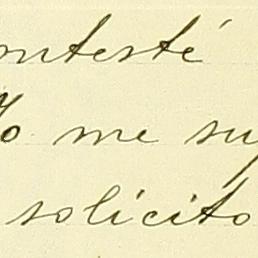 ontesté
Yo me su
solicito